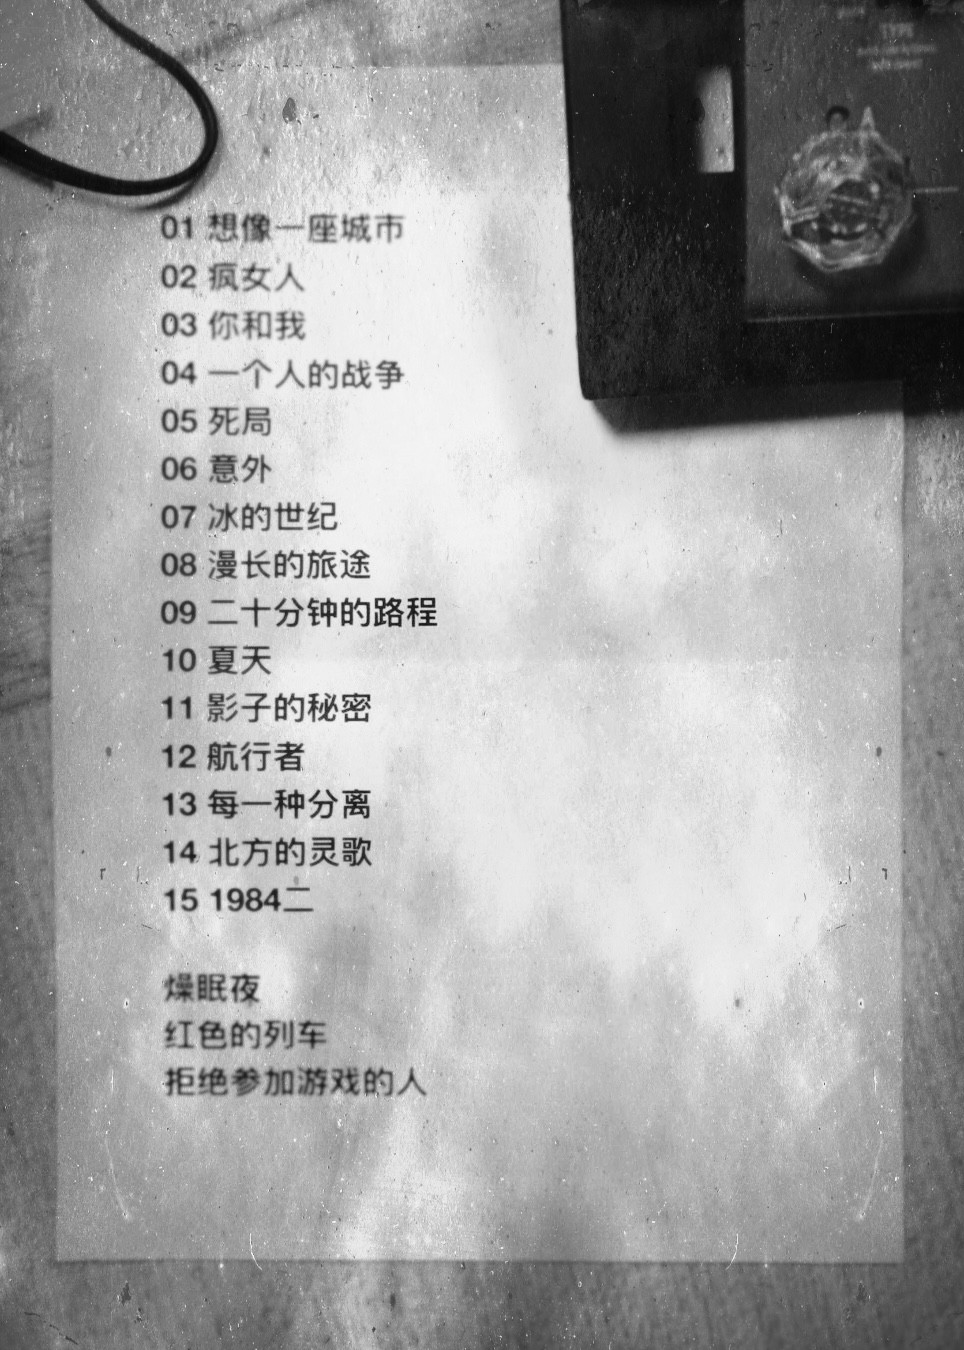 01 想像一座城市
02 疯女人
03 你和我
04 一个人的战争
05 死局
06 意外
07 冰的世纪
08 漫长的旅途
09 二十分钟的路程
10 夏天
11 影子的秘密
12 航行者
13 每一种分离
14 北方的灵歌
15 1984二
燥眠夜
红色的列车
拒绝参加游戏的人